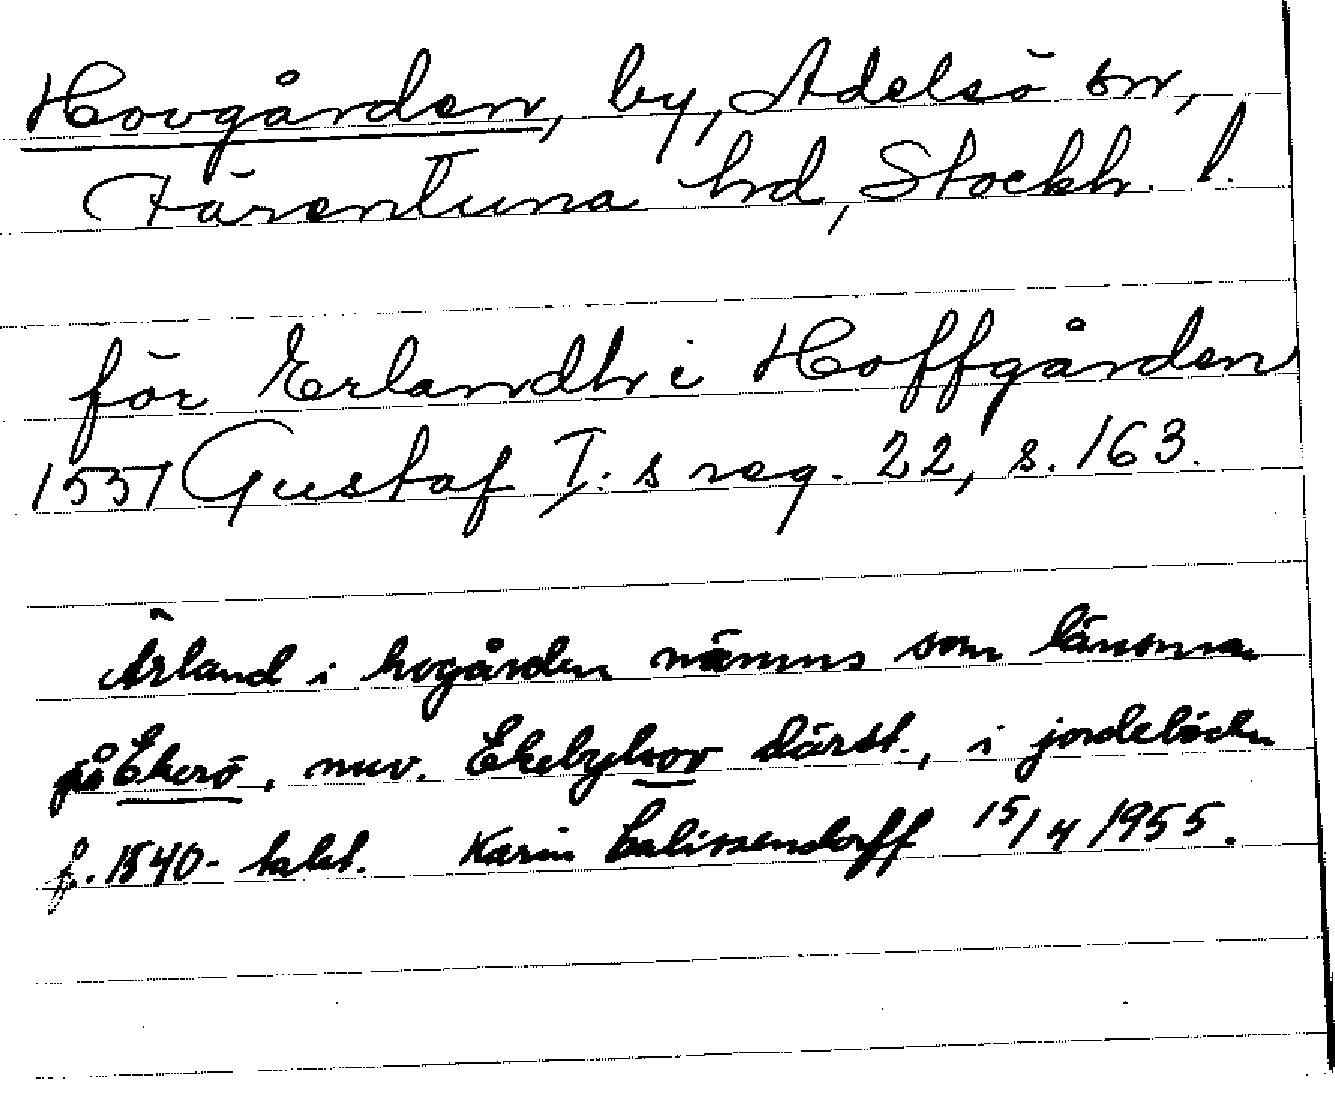 Hovgården, by, Adelsö sn,
Färentuna hd, Stockh. l.
för Erlandh i Hoffgården
1551 Gustaf I:s reg. 22, s. 163.
Ärland i hogården nämns som länsma
på Ekerö, nuv. Ekebyhov därst., i jordeböcker
f. 1540-talet. Karin Calissendorff 15/4 1955.